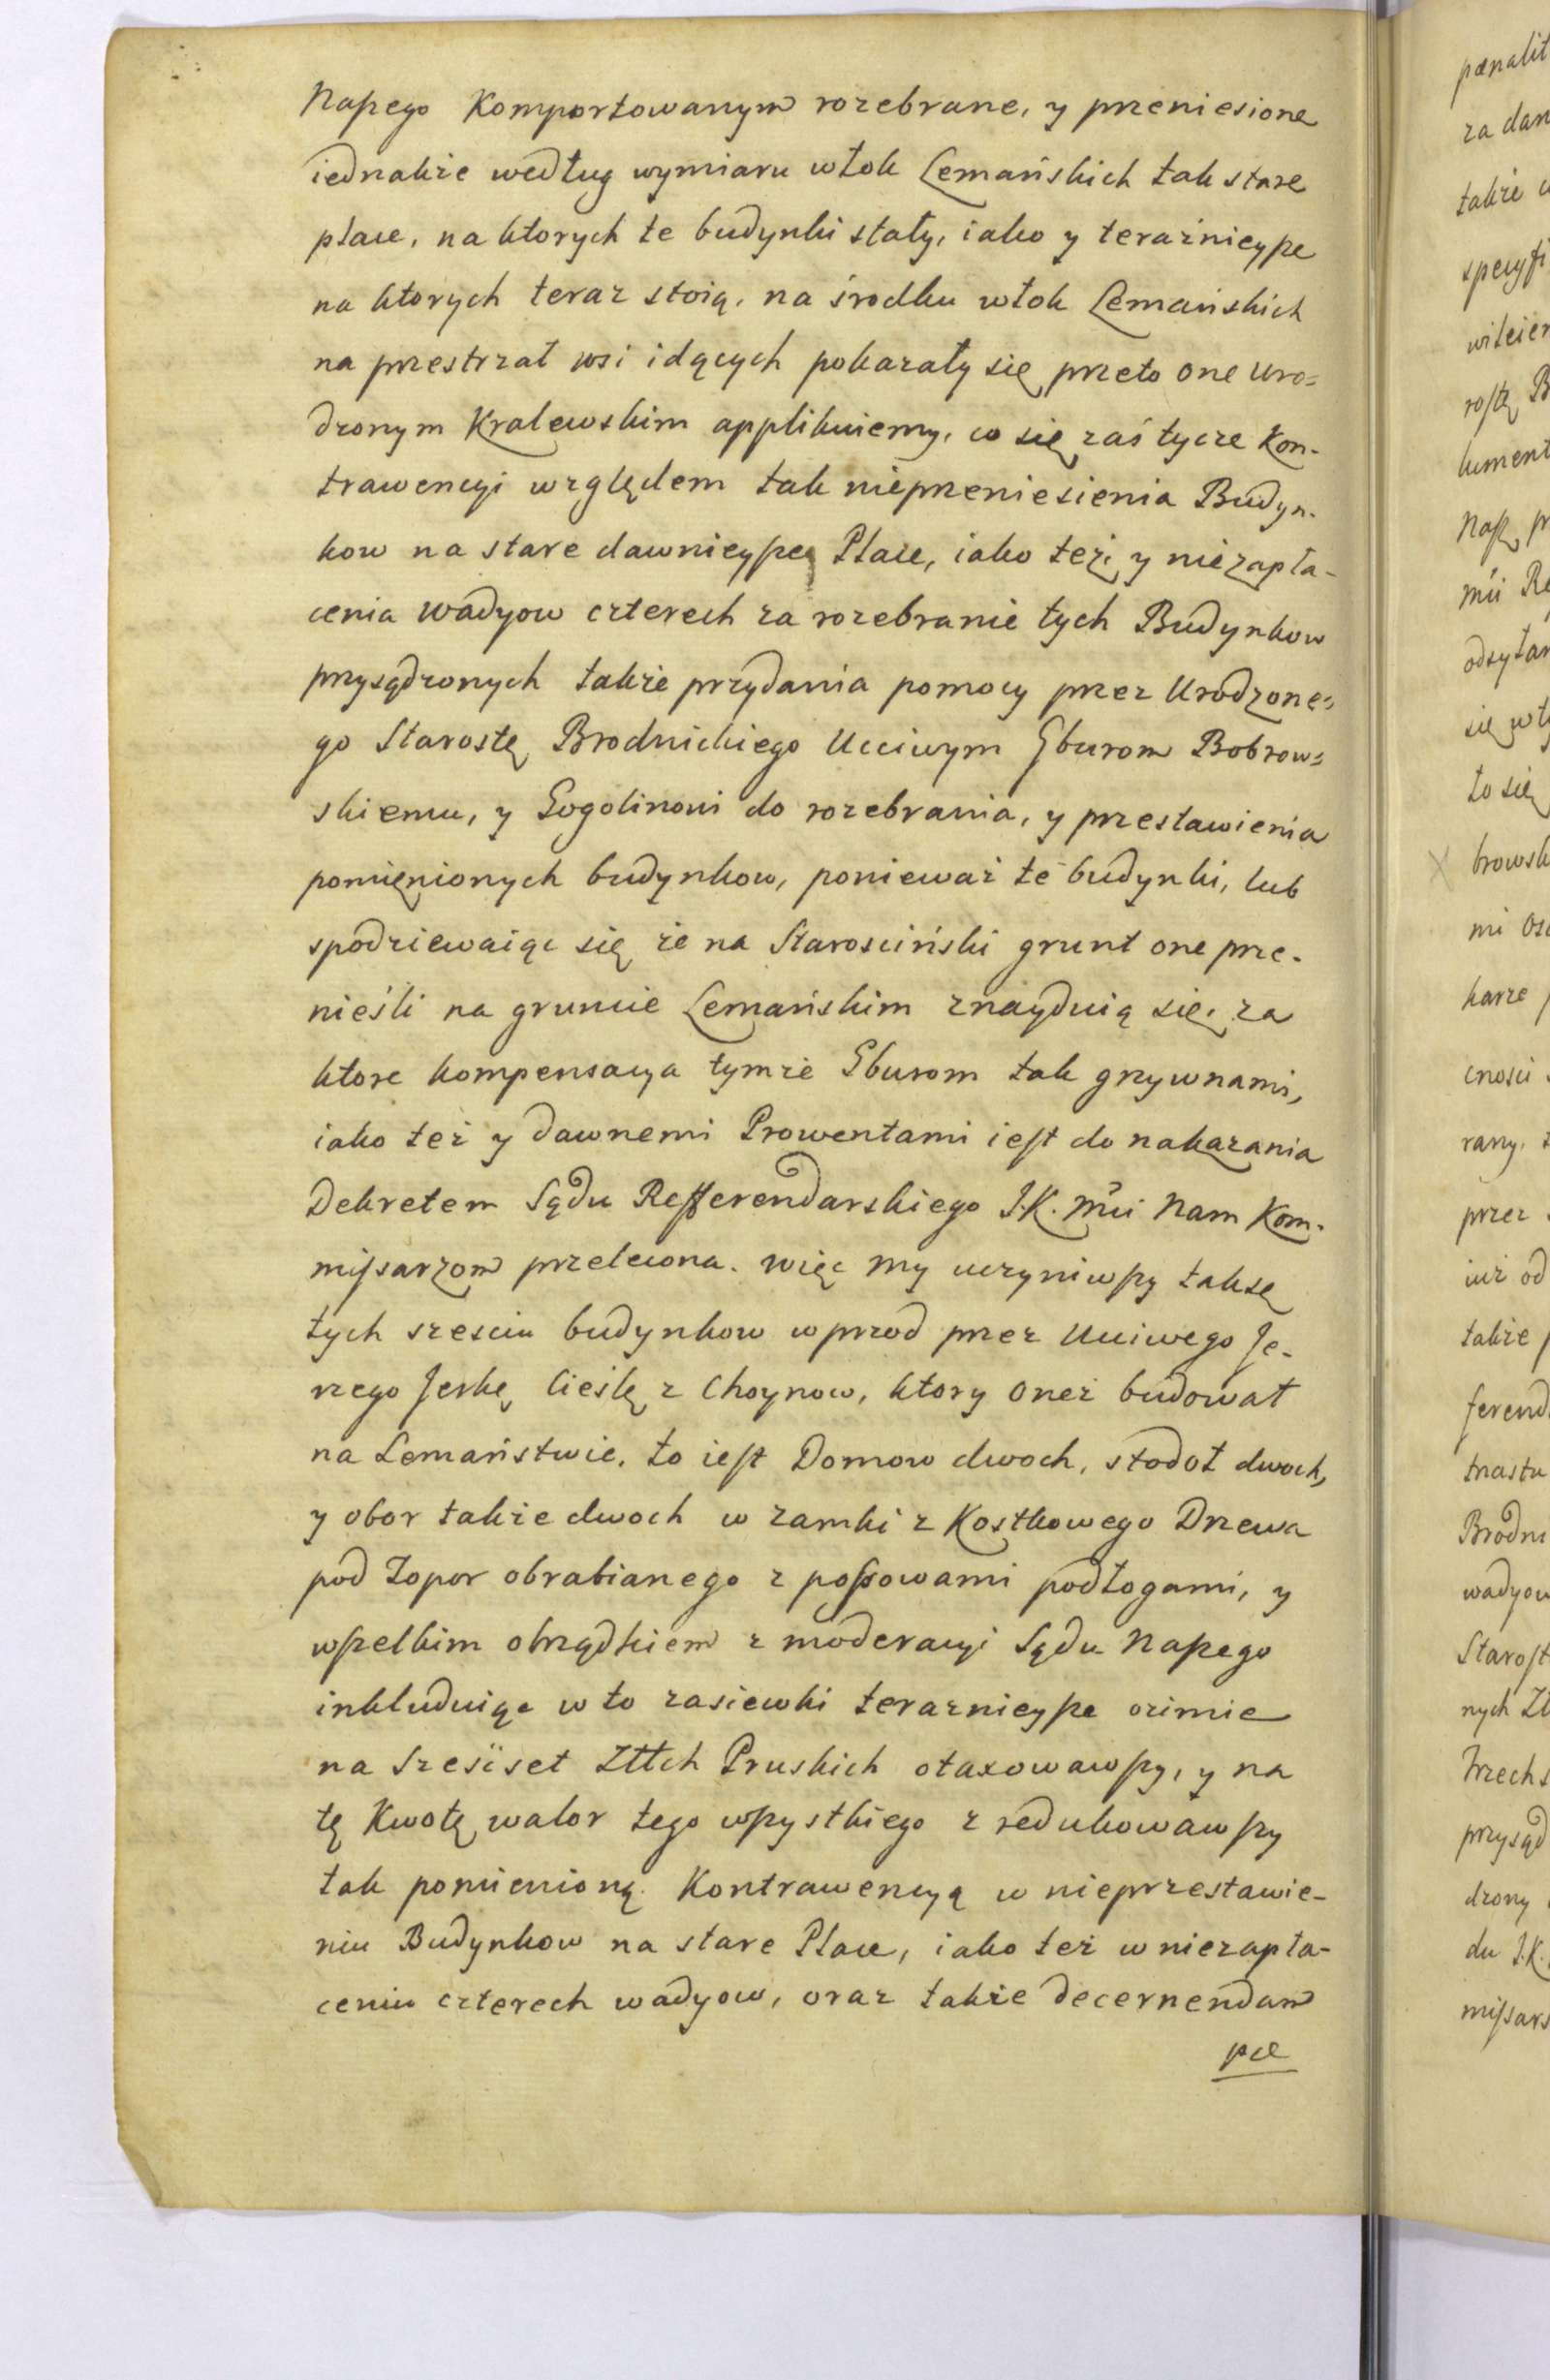 Naszego Komportowanym rozebrane, y przeniesione
iednakże według wymiaru włok Lemańskich tak stare
place, na ktorych te budynki stały, iako y teraźnieysze
na ktorych teraz stoią, na środku włok Lemańskich
na przestrzał wsi idących pokazały się przeto one Uro=
dzonym Kralewskim applikuiemy, co się zaś tycze Kon-
trawencyi względem tak nieprzeniesienia Budyn-
kow na stare dawnieysze Place, iako też y niezapła-
cenia wadyow czterech za rozebranie tych Budynkow
przysądzonych także przydania pomocy przez Urodzone=
go Starostę Brodnickiego Ucciwym Gburom Bobrow=
skiemu, y Gogolinowi do rozebrania, y przestawienia
pomięnionych budynkow, ponieważ te budynki, lub
spodziewaiąc się że na Starosciński grunt one prze-
nieśli na gruncie Lemańskim znayduią się, za
ktore kompensacya tymże Gburom tak grzywnami,
iako też y dawnemi Prowentami iest do nakazania
Dekretem Sądu Refferendarskiego J.K. Mci Nam Kom-
missarzom przelecona. Więc my uczyniwszy taksę
tych sześciu budynkow wprzod przez Ucciwego Je-
rzego Jeskę Cieślę z Choynow, ktory oneż budował
na Lemaństwie, to iest Domow dwoch, stodoł dwoch,
y obor także dwoch w zamki z Kostkowego Drzewa
pod Topor obrabianego z possowami podłogami, y
wszelkim obrządkiem z moderacyi Sądu Naszego
inkluduiąc w to zasiewki teraznieysze ozimie
na Sześćset Złłch Pruskich otaxowawszy, y na
tę Kwotę walor tego wszystkiego zredukowawszy
tak pomienioną Kontrawencyą w nieprzestawie-
niu Budynkow na stare Place, iako też w niezapła-
ceniu czterech wadyow, oraz także decernendam
pæ
pænalit
za dan
także
specyfi
rostę B
kument
Nasz
Mci Re
odsyłan
się
to się
browsk
mi
karze
cnosci
rany,
przez
iuż od
także
ferend
tnastu
Brodni
wadyow
Starost
nych Zł
trzech
przysąd
dzony
du J.K.
missars